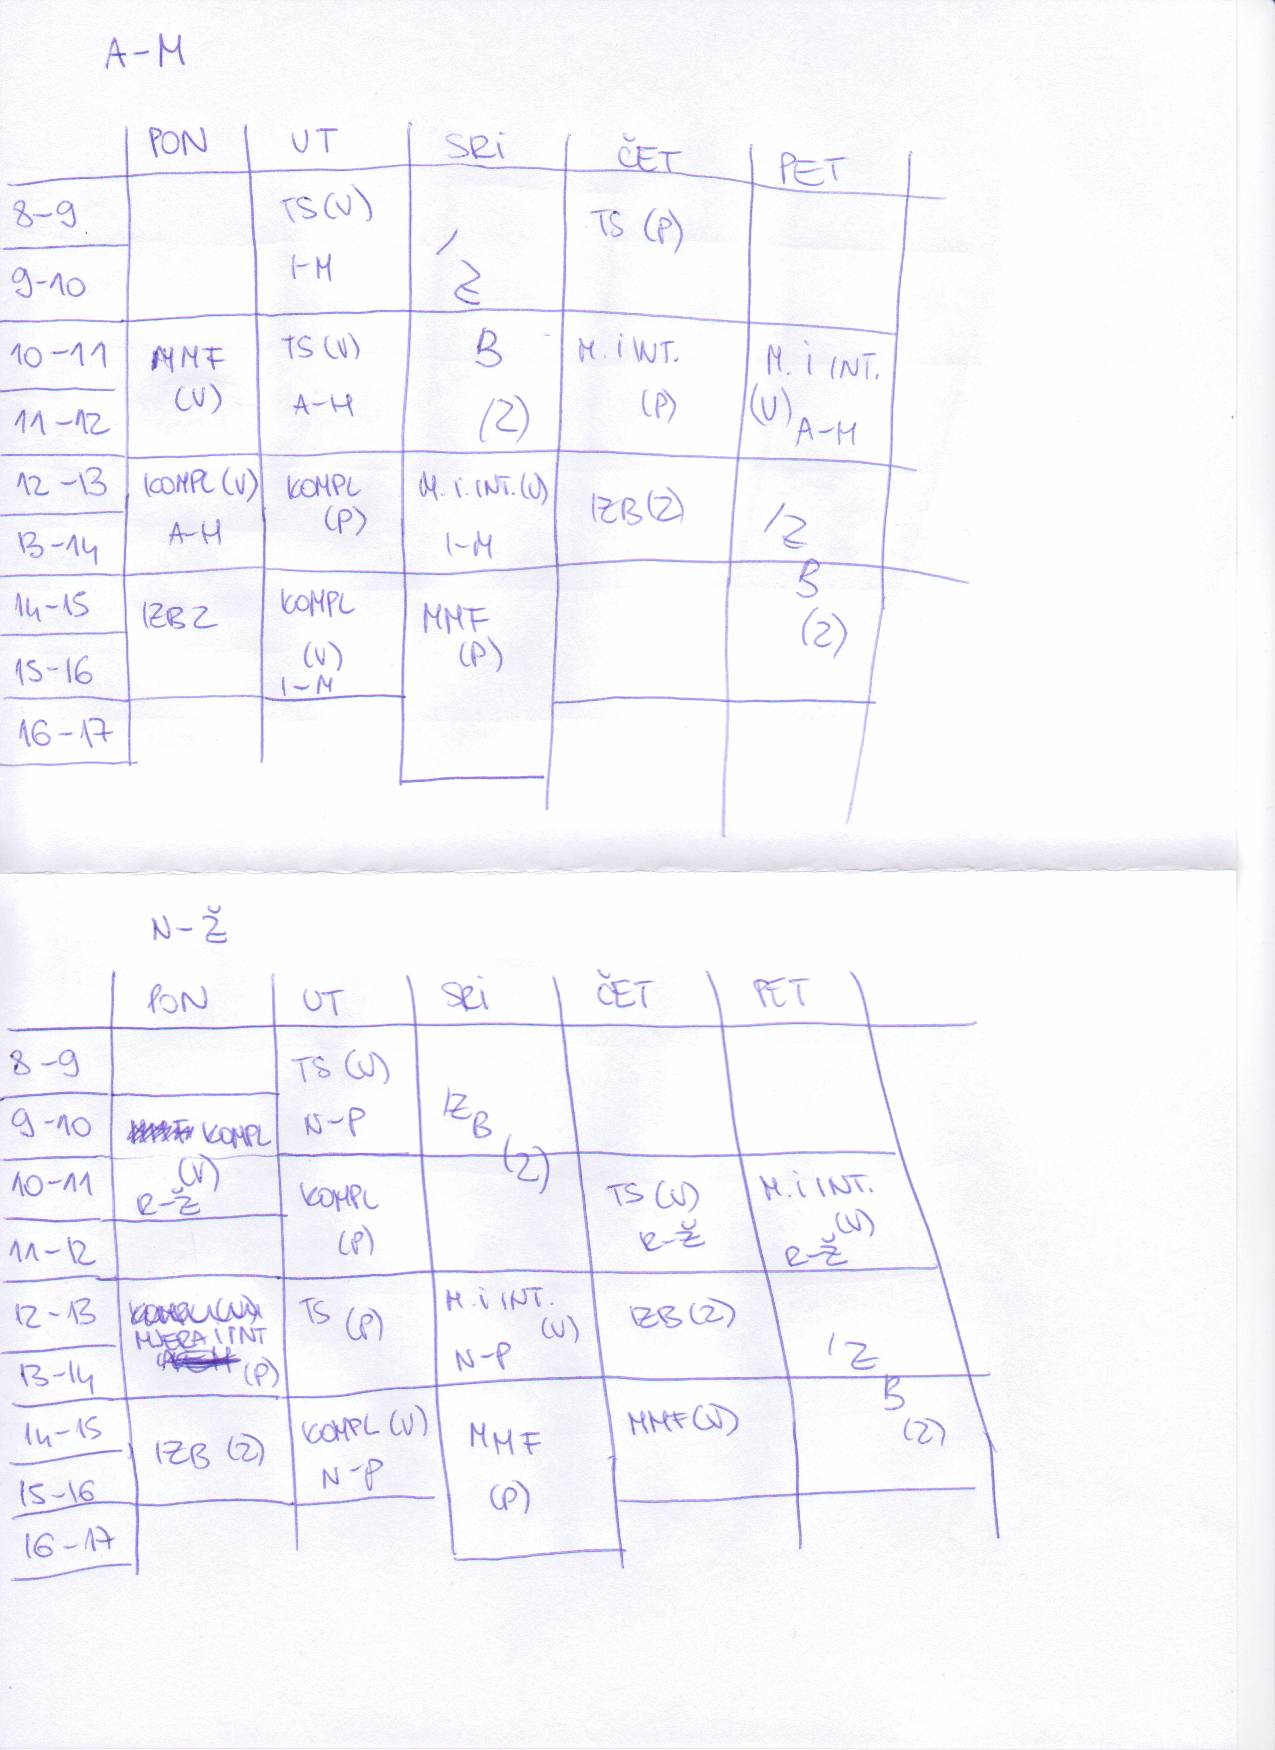 A-M
PON UT SRI ČET PET
8-9 TS(V) TS (P)
9-10 I-M IZ
10-11 MMF TS(V) B M. i INT. M. i INT.
11-12 (V) A-H (2) (P) (V) A-H
12-13 KOMPL(V) KOMPL M. i. INT.(V) IZB(2) IZ
13-14 A-H (P) I-M B
14-15 IZB 2 KOMPL MMF (2)
15-16 (V) (P)
I-M
16-17
N-Ž
PON UT SRI ČET PET
8-9 TS (V)
9-10 KOMPL N-P IZB
10-11 (V) KOMPL (2) TS (V) M. i INT.
R-Ž (P) R-Ž (V)
11-12 R-Ž
12-13 TS (P) M. i INT. IZB(2)
MJERA I INT (V)
13-14 (P) N-P IZ
14-15 IZB (2) KOMPL (V) MMF MMF(V) B
15-16 N-P (P) (2)
16-17